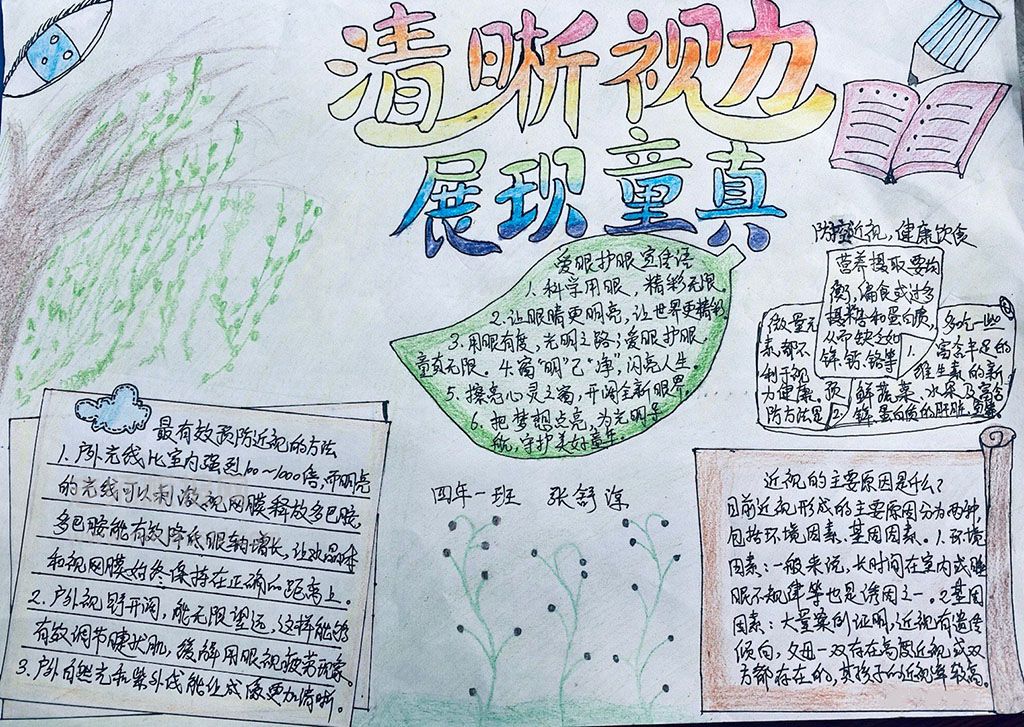 清晰视力
展现童真
爱眼护眼宣传语
1.科学用眼，精彩无限。
2.让眼睛更明亮，让世界更精彩
3.用眼有度，光明之路；爱眼护眼，
童真无限。4.窗"明"己"净"，闪亮人生。
5、擦亮心灵之窗，开阔全新眼界。
6.把梦想点亮，为光明导
航，守护美好童年。
防控近视，健康饮食
营养摄取要均
衡，偏食或过多
摄取糖和蛋白质，
从而缺乏如
锌、钙、铬等
微量元
素，都不
利于视
力健康。预
防方法是
1、多吃一些
富含丰足的
维生素的新
鲜蔬菜、水果
2、及富含
锌、蛋白质的肝脏、
最有效预防近视的方法
1.户外光线比室内强烈100~1000倍，而明亮
的光线可以刺激视网膜释放多巴胺，
多巴胺能有效降低眼轴增长，让水晶体
和视网膜始终保持在正确的距离上。
2.户外视野开阔，能无限望远，这样能够
有效调节睫状肌，缓解用眼视疲劳现象。
3.户外自然光和紫外线能让成像更加清晰。
四年一班 张舒淳
近视的主要原因是什么？
目前近视形成的主要原因分为两种，
包括环境因素、基因因素。1.环境
因素：一般来说，长时间在室内或睡
眠不规律等也是诱因之一。2基因
因素：大量案例证明，近视有遗传
倾向，父母一双存在高度近视或双
方都存在的，其孩子的近视率较高。